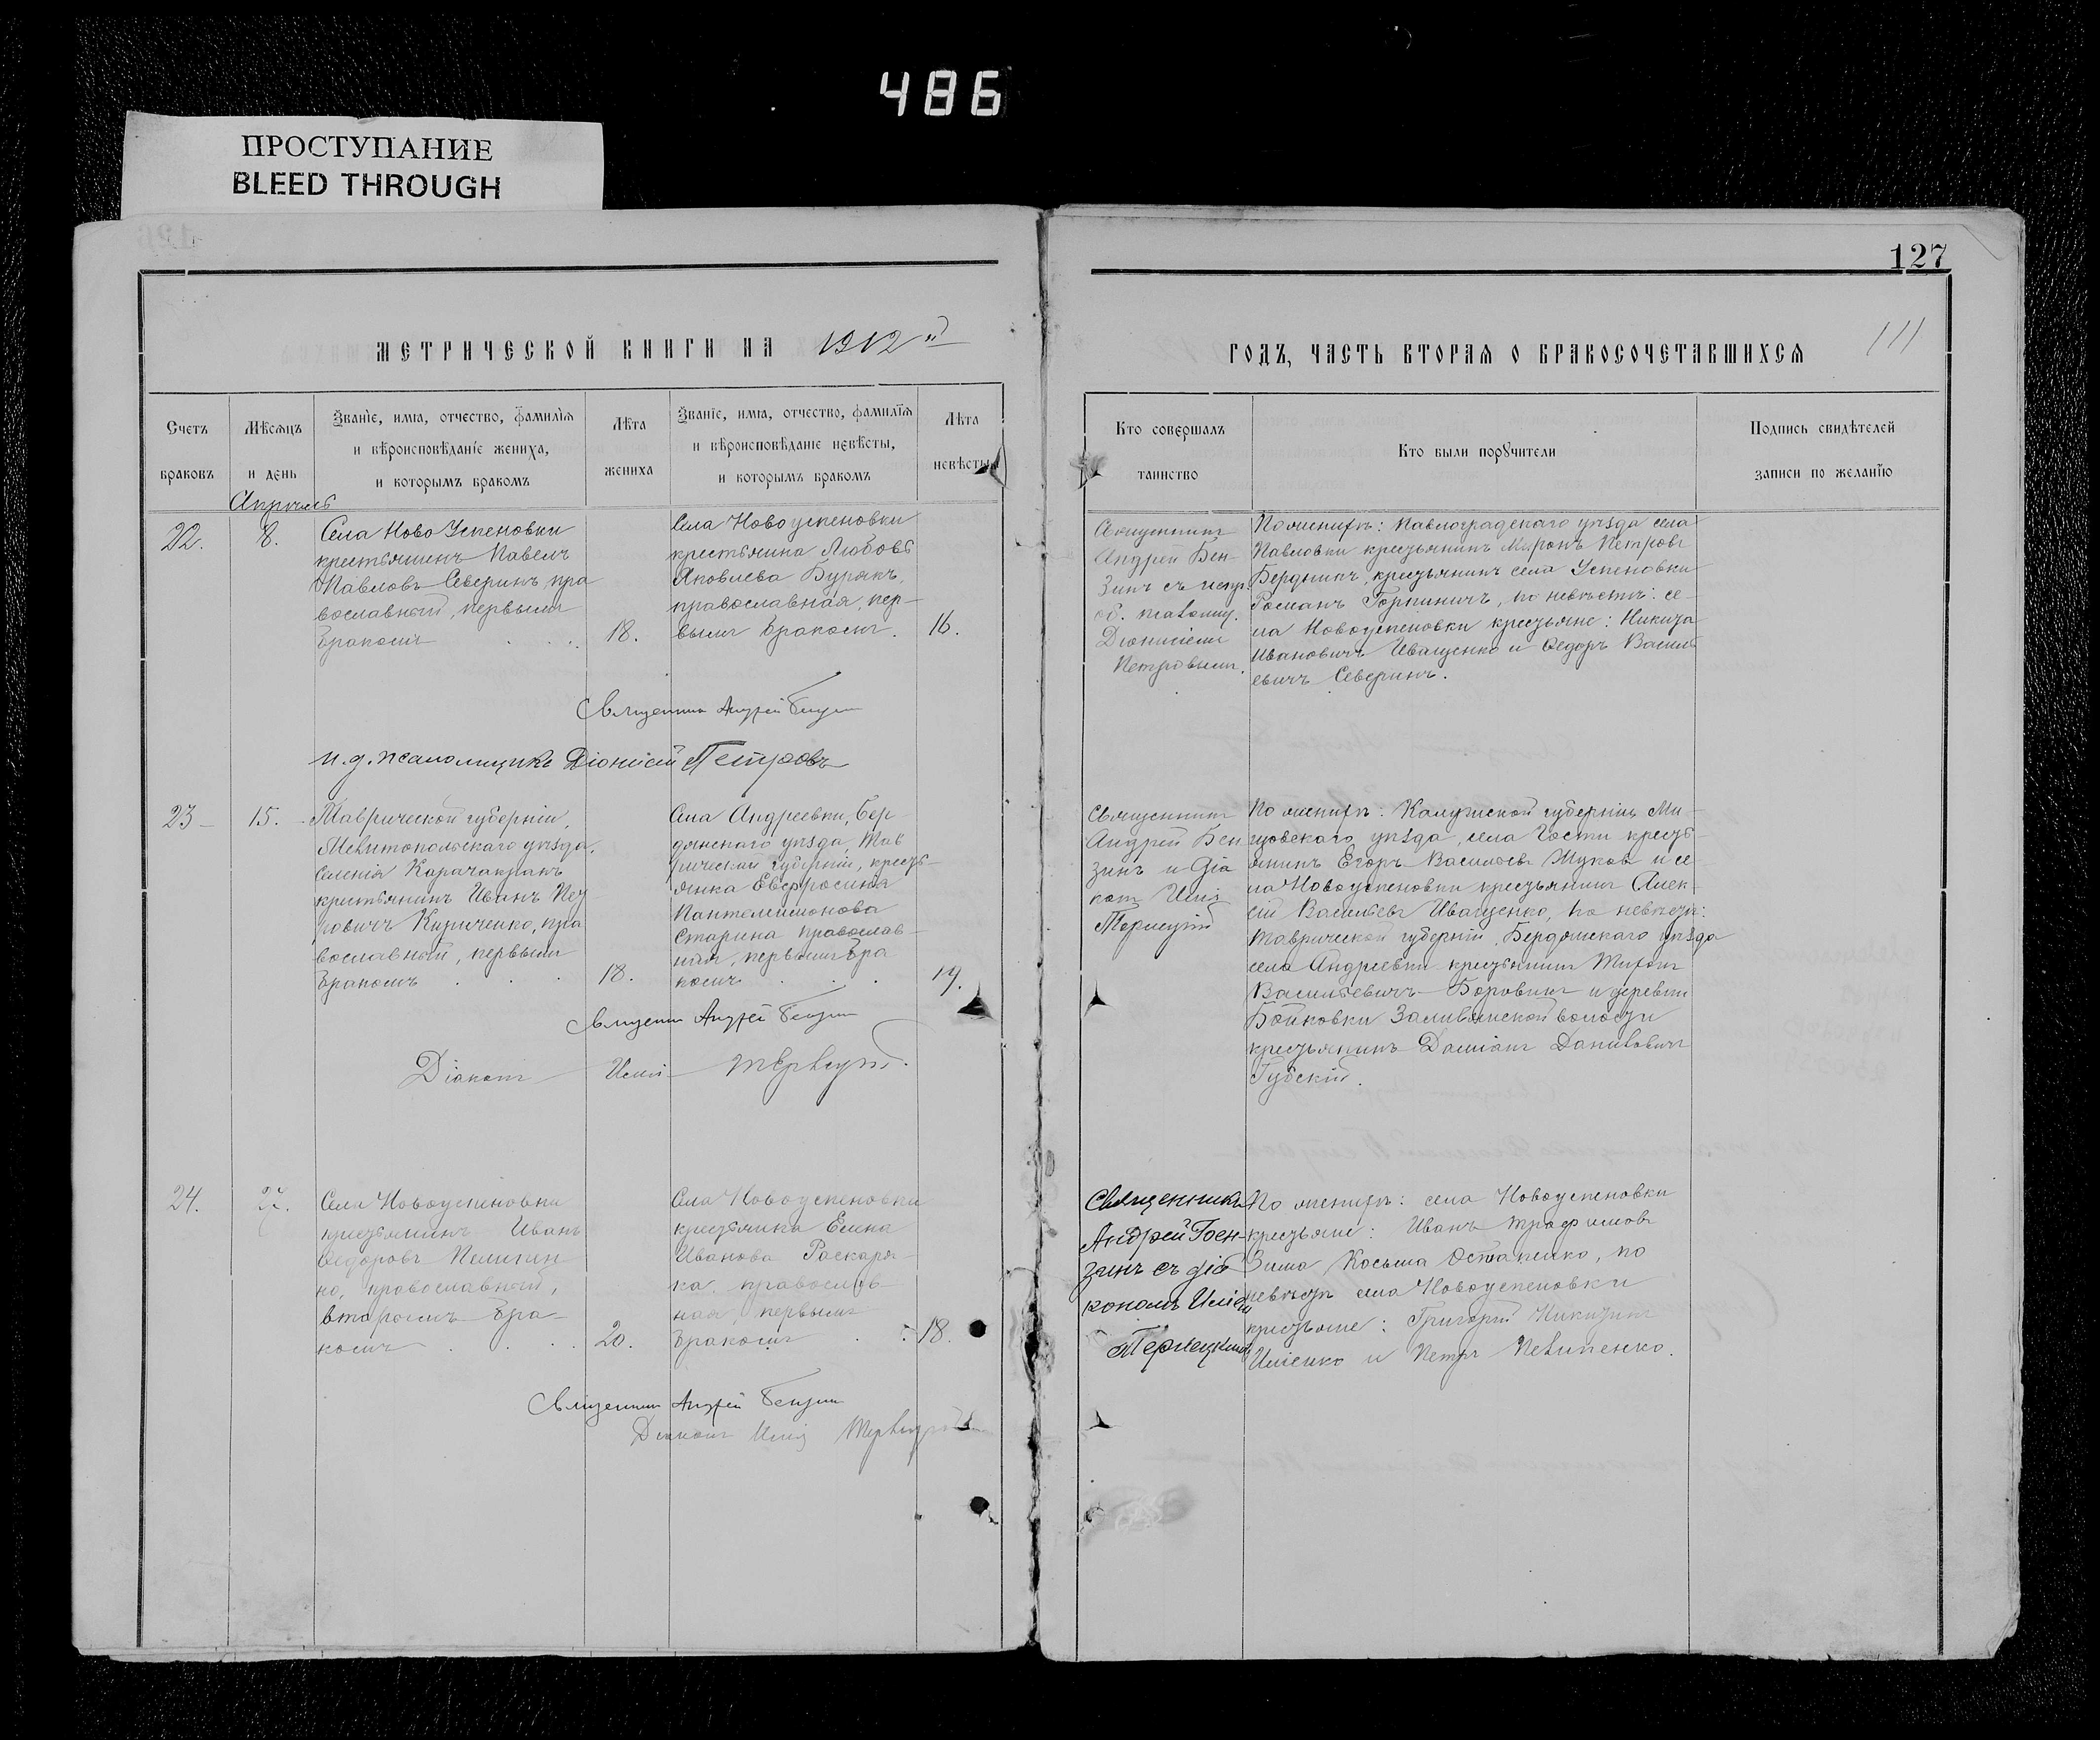 486
ПРОСТУПАНИЕ
BLEED THROUGH
127
111
МЕТРИЧЕСКОЙ КНИГИ НА 1912й
ГОДЪ, ЧАСТЬ ВТОРАЯ О БРАКОСОЧЕТАВШИХСЯ
Счетъ
браковъ
Мѣсяцъ
и день
Званіе, имя, отчество, фамилія
и вѣроисповѣданіе жениха,
и которымъ бракомъ
Лѣта
жениха
Званіе, имя, отчество, фамилія
и вѣроисповѣданіе невѣсты,
и которымъ бракомъ
Лѣта
невѣсты
Кто совершалъ
таинство
Кто были поручители
Подпись свидѣтелей
записи по желанію
Апрѣль
22.
8.
Села Ново Успеновки
крестьянинъ Павелъ
Павловъ Северинъ, пра
вославный, первымъ
бракомъ
18.
Села Новоуспеновки
крестьянка Любовь
Яковлева Бурякъ,
православная, пер-
вымъ бракомъ.
16.
Священникъ
Андрей Бен-
зинъ съ
Діонисіемъ
Петровымъ.
По женихѣ: Павлоградскаго уѣзда села
Павловки крестьянинъ Миронъ Петровъ
Бердникъ, крестьянинъ села Успеновки
Романъ, по невѣстѣ: се-
ла Новоуспеновки крестьяне: Никита
Ивановичъ Иващенко и Ѳедоръ Василь
евичъ Северинъ.
Священникъ Андрей Бензинъ
и. д. псаломщика Діонисій Петровъ
23
15.
Таврической губерніи,
Мелитопольскаго уѣзда,
селенія Карачакракъ
крестьянинъ Иванъ Пет
ровичъ Кириченко, пра
вославный, первымъ
бракомъ
18.
Села Андреевки, Бер
дянскаго уѣзда, Тав
рической губерніи, кресть-
янка Евфросинія
Пантелеимонова
Старина православ-
ная, первымъ бра
комъ
19.
Священникъ
Андрей Бен
зинъ и діа
конъ Илія
По женихѣ: Калужской губерніи Ми-
щовскаго уѣзда, села Гости кресть
янинъ Егоръ Васильевъ Жуковъ и се-
ла Новоуспеновки крестьянинъ Алек-
сій Васильевъ Иващенко, по невѣстѣ:
Таврической губерніи, Бердянскаго уѣзда
села Андреевки крестьянинъ
Васильевичъ Боровикъ и деревни
Бойковки волости
крестьянинъ Даміанъ Даниловичъ
Губскій.
Священникъ Андрей Бензинъ
Діаконъ Илія
24.
Села Новоуспеновки
крестьянинъ Иванъ
Ѳедоровъ
но, православный,
вторымъ бра-
комъ
20.
Села Новоуспеновки
крестьянка Елена
Иванова Раскаря-
ка, православ
ная, первымъ
бракомъ
18.
Священникъ
Андрей Бен-
зинъ съ діа
кономъ Иліей
По женихѣ: села Новоуспеновки
крестьяне: Иванъ Трофимовъ
Зима Косьма Остапенко, по
невѣстѣ села Новоуспеновки
крестьяне: Григорій Никитинъ
Ильенко и Петръ Пилипенко.
Священникъ Андрей Бензинъ
Діаконъ Илія